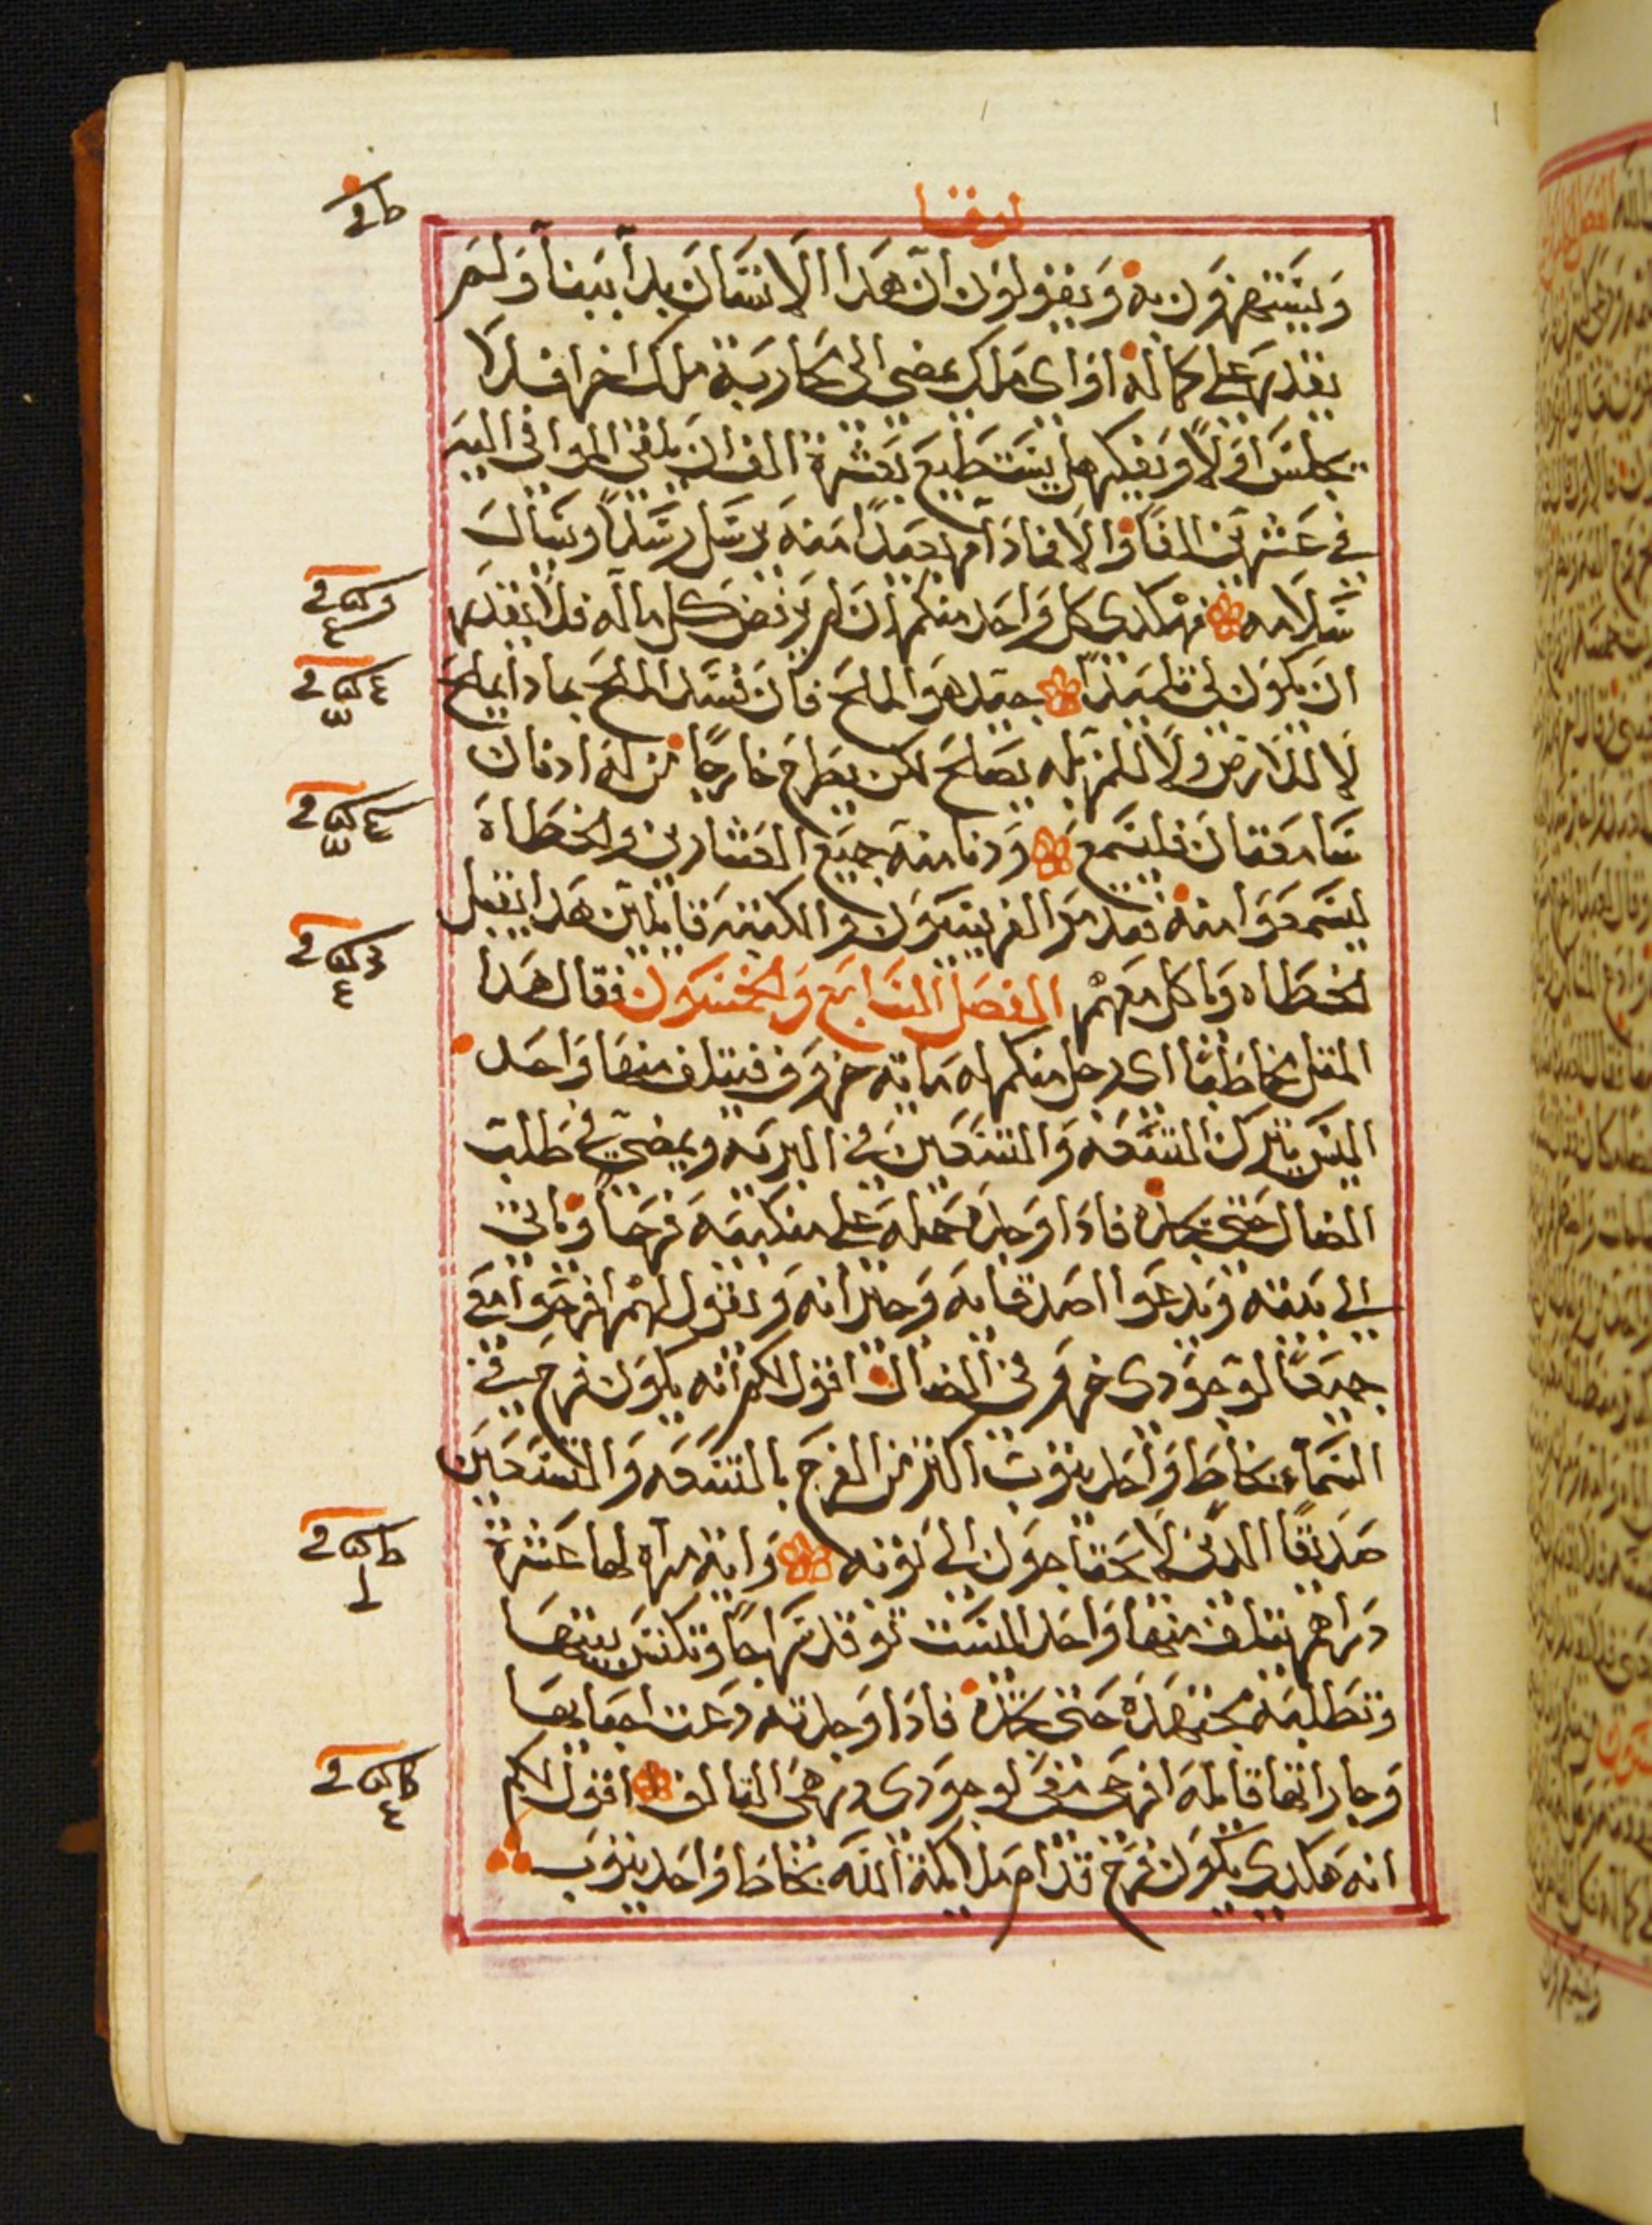 لوقا
ويستهزون به ويقولون ان هدا الانسان بدا ببنا ولم
يقدر على كماله او اى ملك يمضي الى محاربة ملك اخر افلا
يجلس اولا ويفكر هل يستطيع بعشرة الف ان يلقي الموافي اليه
في عشرين الفا والا فمادام بعيدا منه يرسل رسلا ويسال
سلامه فهكدى كل واحد منكم ان لم يرفض كل ماله فلا يقدر
ان يكون لي تلميدا جيد هو الملح فان فسد الملح بمادا يملح
لا للارض ولا للمزبله يصلح لكن يطرح خارجا من له ادنان
سامعتان فليسمع ودنا منه جميع العشارين والخطاة
ليسمعوا منه فتدمر الفريسيون والكتبه قايلين هدا يقبل
الخطاه وياكل معهم الفصل السابع والخمسون فقال هدا
المتل مخاطبا اى رجل منكم له مايه خروف فيتلف منها واحد
اليس يترك التسعه والتسعين في البريه ويمضي في طلب
الضال حتى يجده فادا وجده حمله على منكبيه فرحا وياتي
الى بيته ويدعوا اصدقايه وجيرانه ويقول لهم افرحوا معي
جميعا لوجودى خروفي الضال اقول لكم انه يكون فرح في
السماء بخاط واحد يتوب اكتر من الفرح بالتسعه والتسعين
صديقا الدين لا يحتاجون الى توبه واية مراه لها عشرة
دراهم يتلف منها واحد اليست توقد سراجا وتكنس بيتها
وتطلبه مجتهدة حتى تجده فادا وجدته دعت احبايها
وجاراتها قايله افرحن معي لوجودى درهمي التالف اقول لكم
انه هكدى يكون فرح قدام ملايكة الله بخاط واحد يتوب